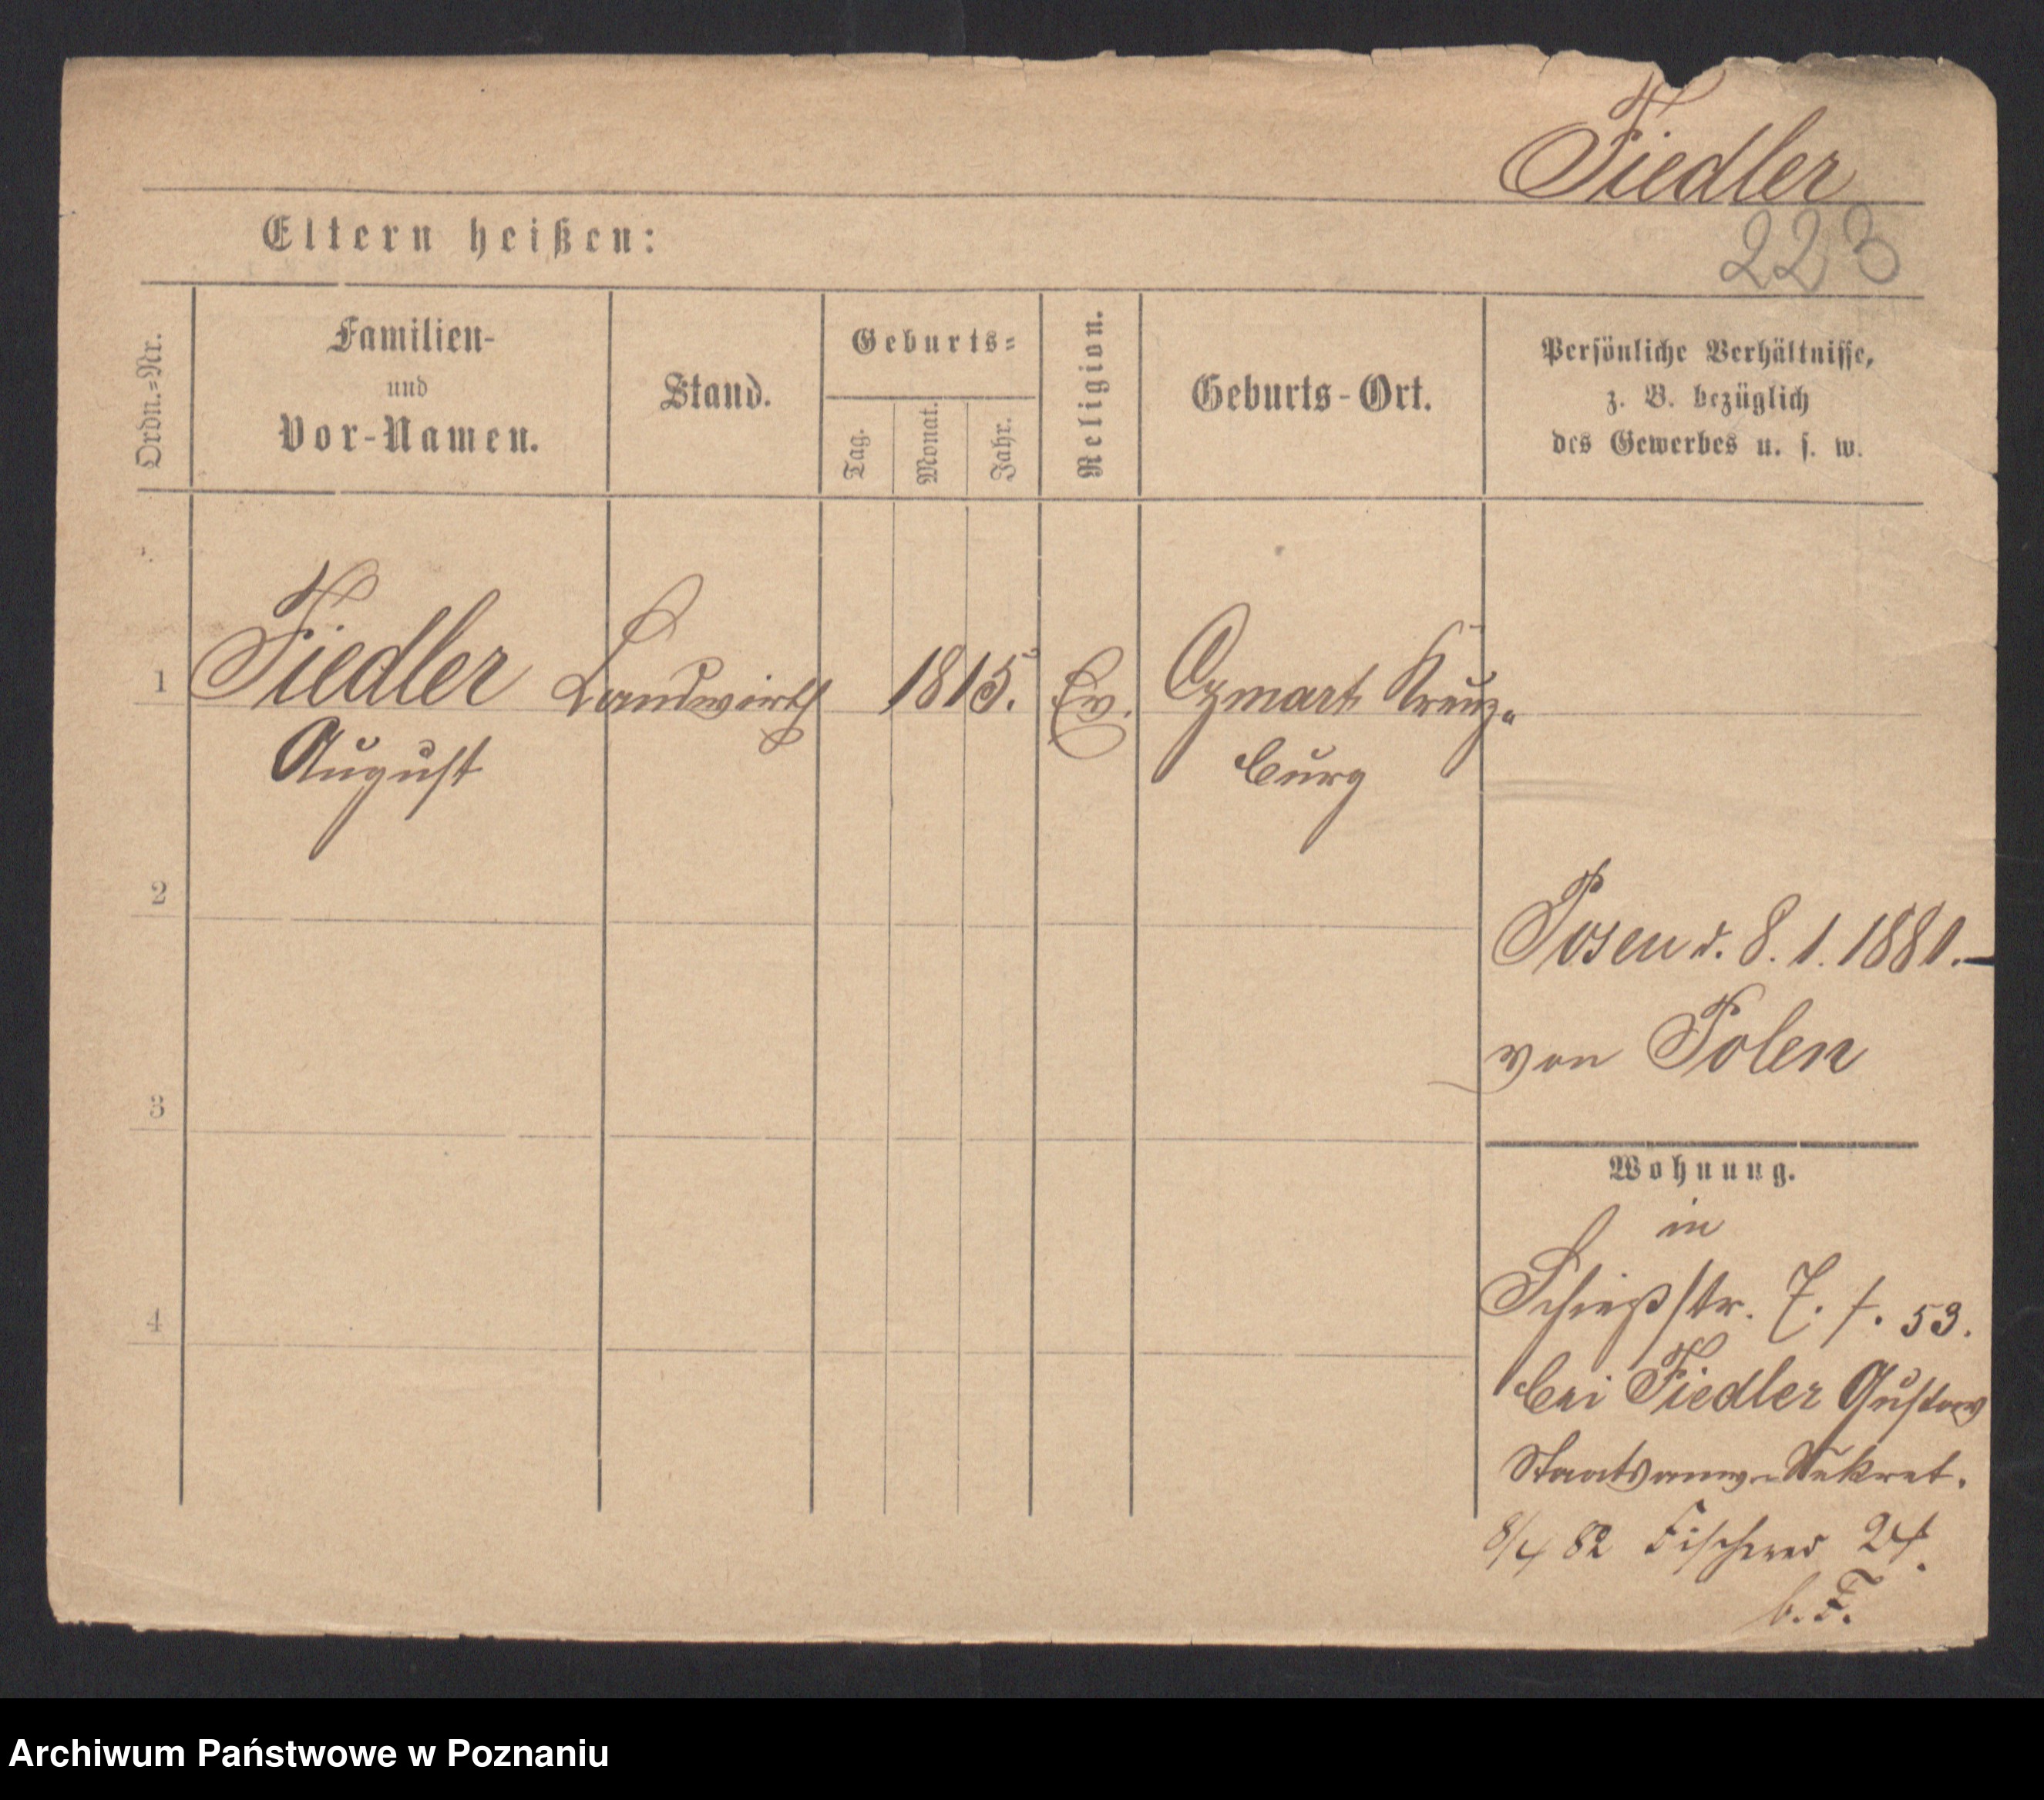 Fiedler
223
Eltern heißen:
Ordn.=Nr.
Familien-
und
Vor-Namen.
Stand.
Geburts=
Tag.
Monat.
Jahr.
Religion.
Geburts-Ort.
Persönliche Verhältnisse,
z. B. bezüglich
des Gewerbes u. s. w.
1
Fiedler Landwirth 1815. Ev. Kreuz=
August burg
2
Posen d. 8. 1. 1881.
von Polen
3
Wohnung.
in
4
Schießstr. 7. 53.
bei Fiedler Gustav
Staatsanw. Sekret.
8/4 82 Fischerei 24.
b. F.
Archiwum Państwowe w Poznaniu